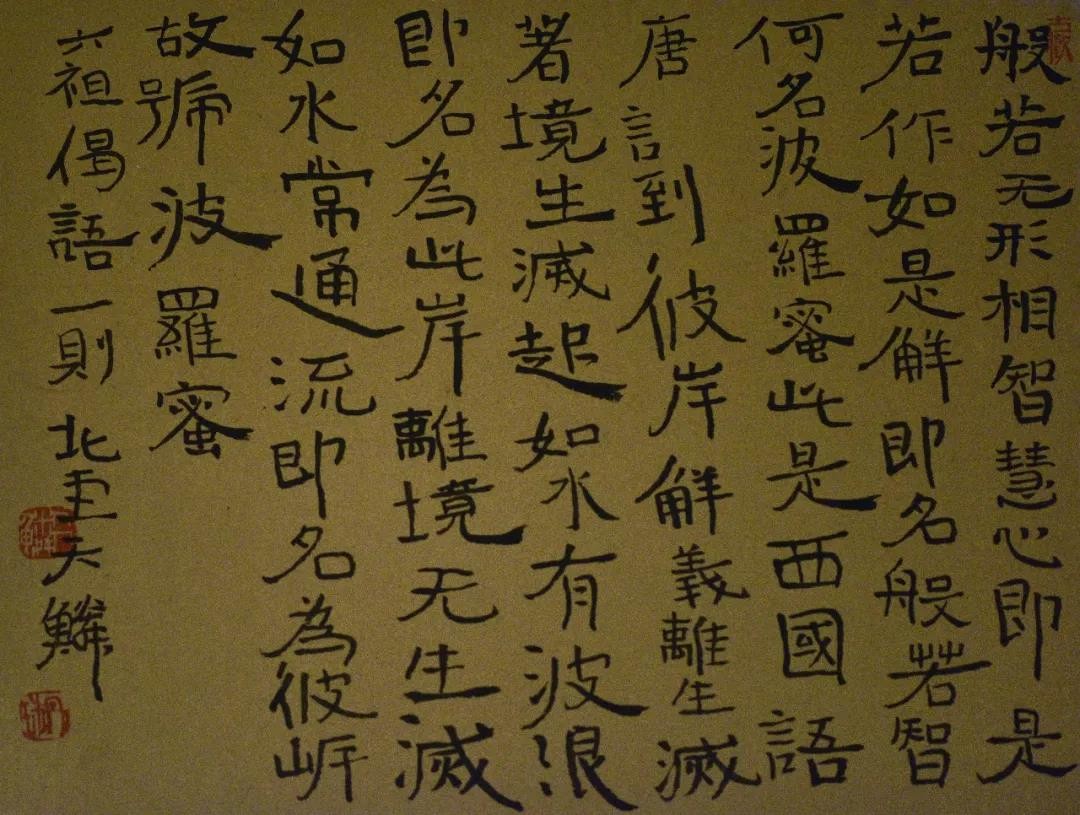 般若无形相智慧心即是
若作如是解即名般若智
何名波羅蜜此是西國語
唐言到彼岸解義離生滅
著境生滅起如水有波浪
即名為此岸離境无生滅
如水常通流即名為彼岍
故號波羅蜜
六祖偈語一則北重天鱗